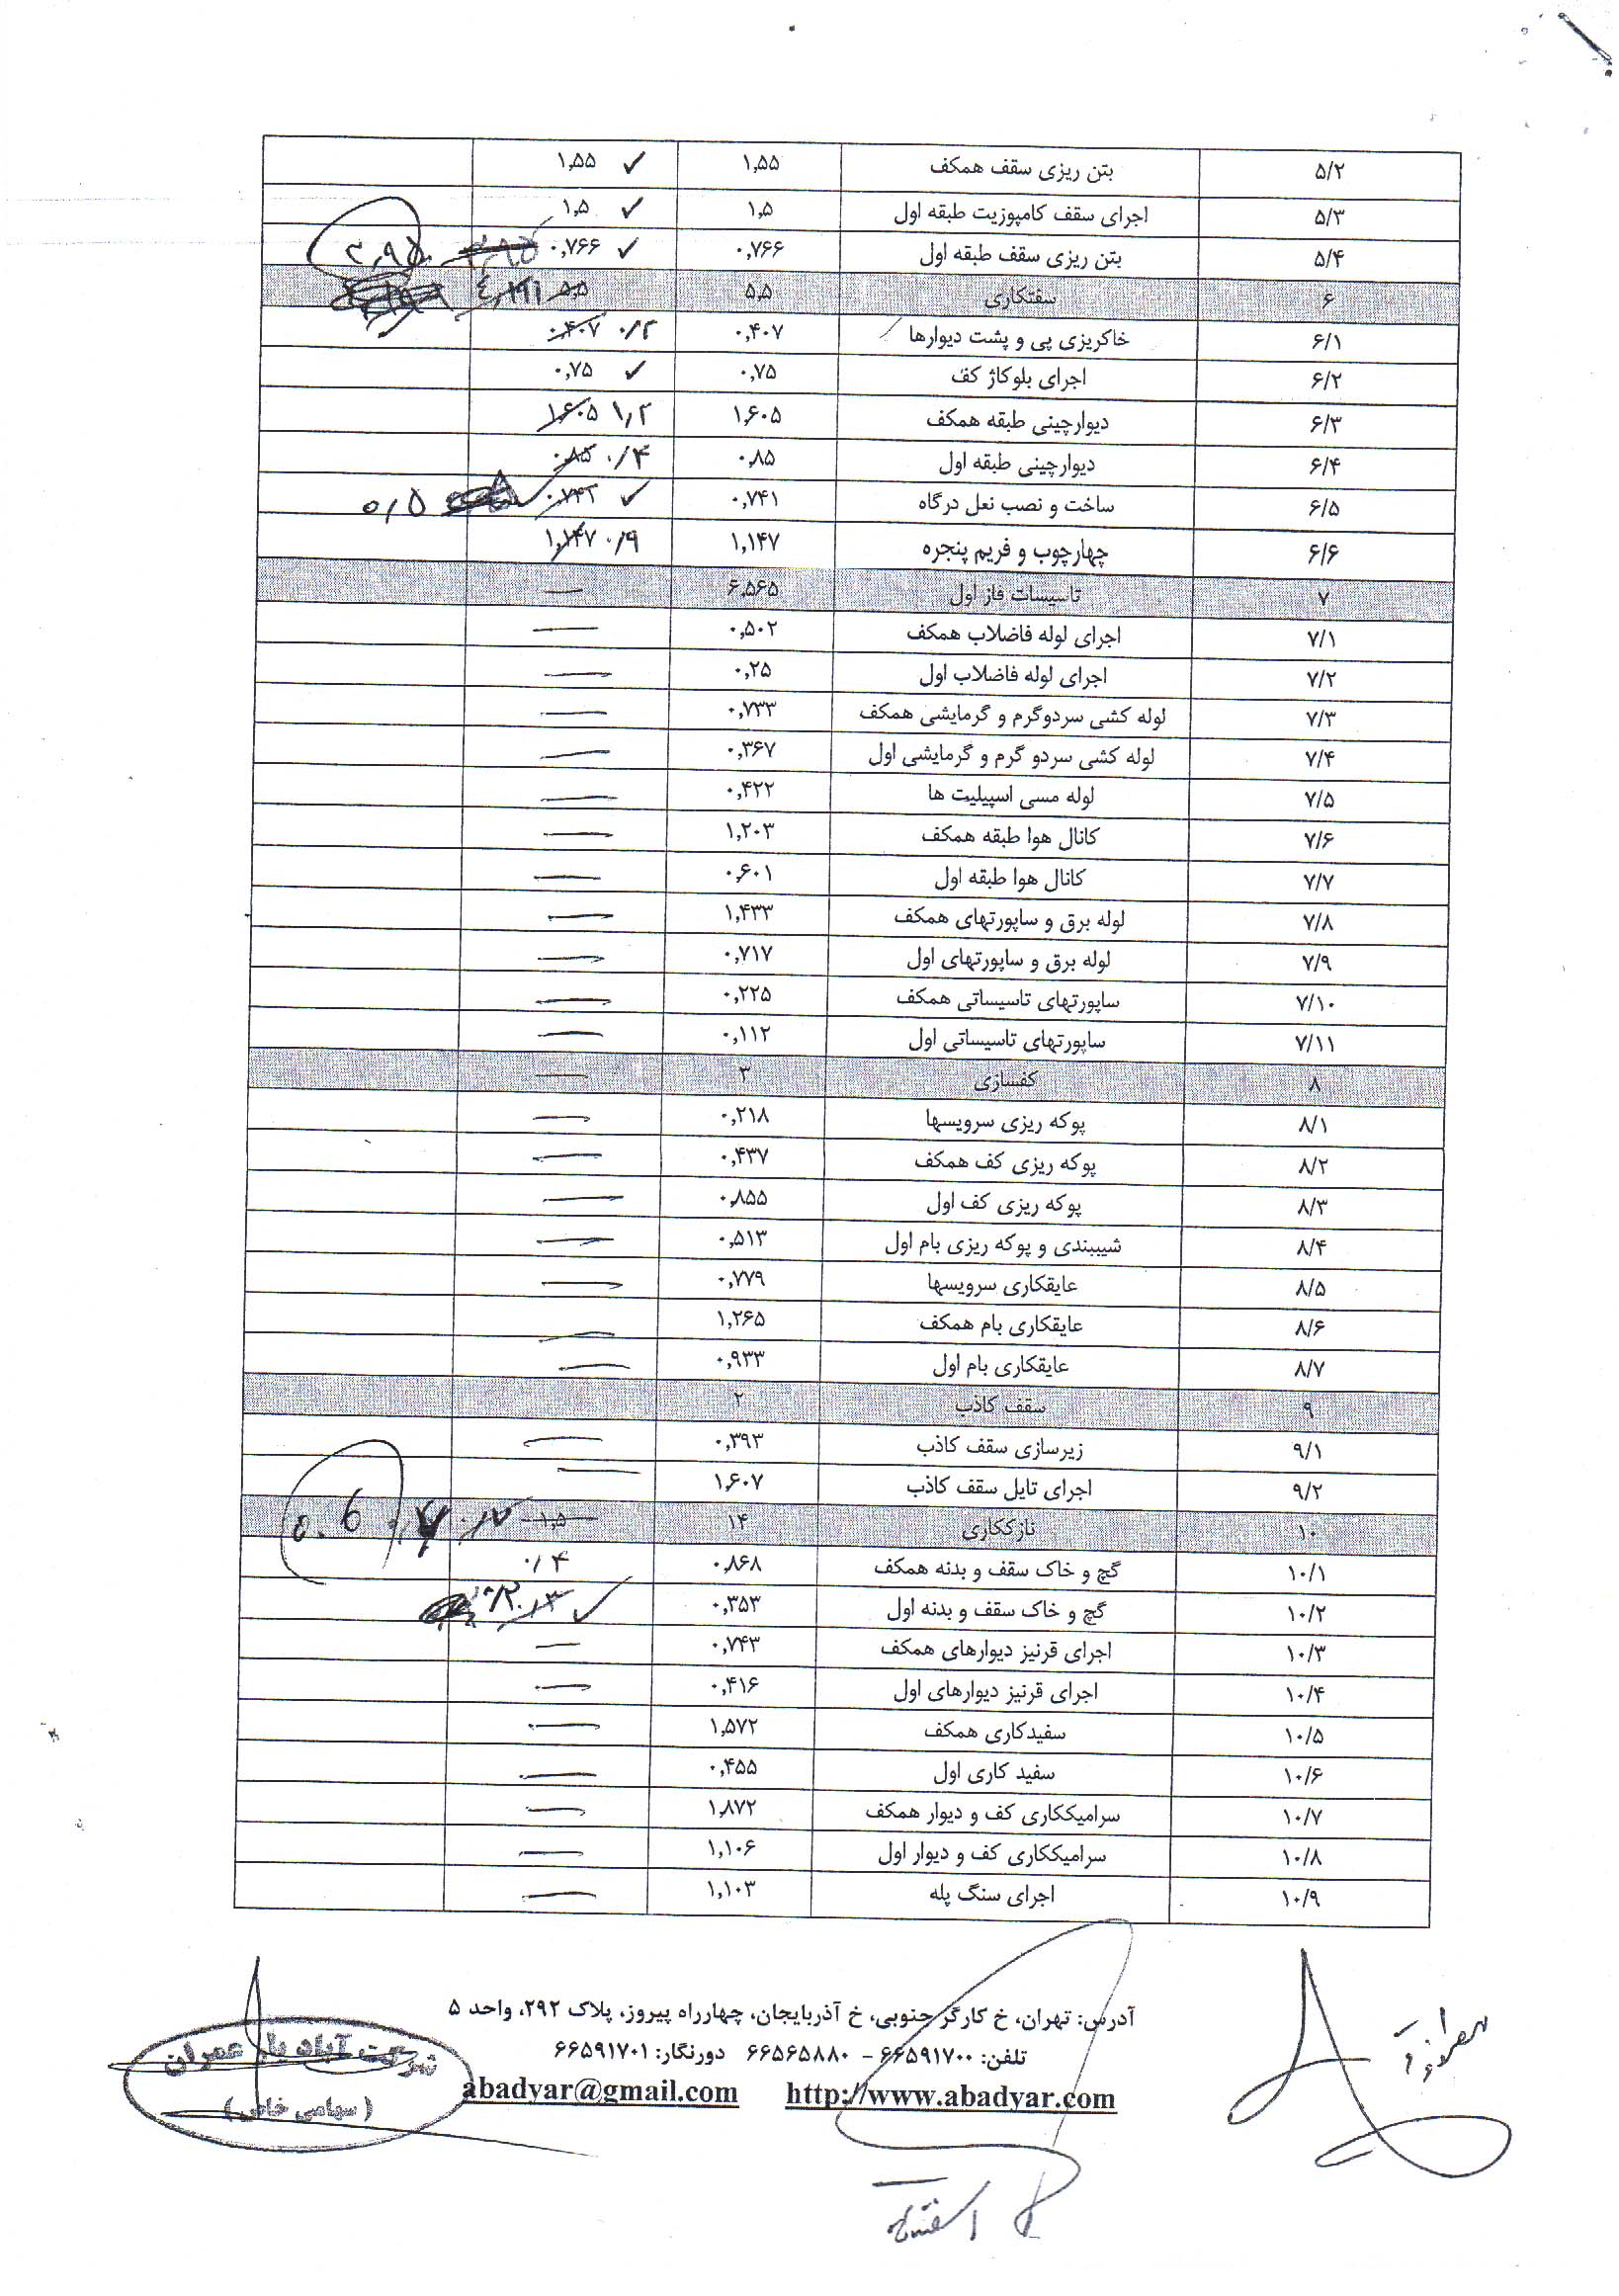 ۵/۲ بتن ریزی سقف همکف ۱,۵۵ ۱,۵۵ ✓
۵/۳ اجرای سقف کامپوزیت طبقه اول ۱,۵ ۱,۵ ✓
۵/۴ بتن ریزی سقف طبقه اول ۰,۷۶۶ ۰,۷۶۶ ✓
۶ سفتکاری ۵,۵ ۵,۵
۶/۱ خاکریزی پی و پشت دیوارها ۰,۴۰۷ ۰,۴۰۷ ۰/۲
۶/۲ اجرای بلوکاژ کف ۰,۷۵ ۰,۷۵ ✓
۶/۳ دیوارچینی طبقه همکف ۱,۶۰۵ ۱,۶۰۵ ۱,۲
۶/۴ دیوارچینی طبقه اول ۰,۸۵ ۰,۸۵ ۰/۴
۶/۵ ساخت و نصب نعل درگاه ۰,۷۴۱ ۰,۷۴۱ ✓ ۰,۵
۶/۶ چهارچوب و فریم پنجره ۱,۱۴۷ ۱,۱۴۷ ۰/۹
۷ تاسیسات فاز اول ۶,۵۶۵ —
۷/۱ اجرای لوله فاضلاب همکف ۰,۵۰۲ —
۷/۲ اجرای لوله فاضلاب اول ۰,۲۵ —
۷/۳ لوله کشی سردوگرم و گرمایشی همکف ۰,۷۳۳ —
۷/۴ لوله کشی سردو گرم و گرمایشی اول ۰,۳۶۷ —
۷/۵ لوله مسی اسپیلیت ها ۰,۴۲۲ —
۷/۶ کانال هوا طبقه همکف ۱,۲۰۳ —
۷/۷ کانال هوا طبقه اول ۰,۶۰۱ —
۷/۸ لوله برق و ساپورتهای همکف ۱,۴۳۳ —
۷/۹ لوله برق و ساپورتهای اول ۰,۷۱۷ —
۷/۱۰ ساپورتهای تاسیساتی همکف ۰,۲۲۵ —
۷/۱۱ ساپورتهای تاسیساتی اول ۰,۱۱۲ —
۸ کفسازی ۳ —
۸/۱ پوکه ریزی سرویسها ۰,۲۱۸ —
۸/۲ پوکه ریزی کف همکف ۰,۴۳۷ —
۸/۳ پوکه ریزی کف اول ۰,۸۵۵ —
۸/۴ شیببندی و پوکه ریزی بام اول ۰,۵۱۳ —
۸/۵ عایقکاری سرویسها ۰,۷۷۹ —
۸/۶ عایقکاری بام همکف ۱,۲۶۵ —
۸/۷ عایقکاری بام اول ۰,۹۳۳ —
۹ سقف کاذب ۲
۹/۱ زیرسازی سقف کاذب ۰,۳۹۳ —
۹/۲ اجرای تایل سقف کاذب ۱,۶۰۷ —
۱۰ نازککاری ۱۴ ۱,۵ 0.6
۱۰/۱ گچ و خاک سقف و بدنه همکف ۰,۸۶۸ ۰/۴
۱۰/۲ گچ و خاک سقف و بدنه اول ۰,۳۵۳ ✓ ۰/۳ ۰/۲
۱۰/۳ اجرای قرنیز دیوارهای همکف ۰,۷۴۳ —
۱۰/۴ اجرای قرنیز دیوارهای اول ۰,۴۱۶ —
۱۰/۵ سفیدکاری همکف ۱,۵۷۲ —
۱۰/۶ سفید کاری اول ۰,۴۵۵ —
۱۰/۷ سرامیککاری کف و دیوار همکف ۱,۸۷۲ —
۱۰/۸ سرامیککاری کف و دیوار اول ۱,۱۰۶ —
۱۰/۹ اجرای سنگ پله ۱,۱۰۳ —
آدرس: تهران، خ کارگر جنوبی، خ آذربایجان، چهارراه پیروز، پلاک ۲۹۲، واحد ۵
تلفن: ۶۶۵۹۱۷۰۰ - ۶۶۵۶۵۸۸۰ دورنگار: ۶۶۵۹۱۷۰۱
abadyar@gmail.com http://www.abadyar.com
شرکت آباد یار عمران
(سهامی خاص)